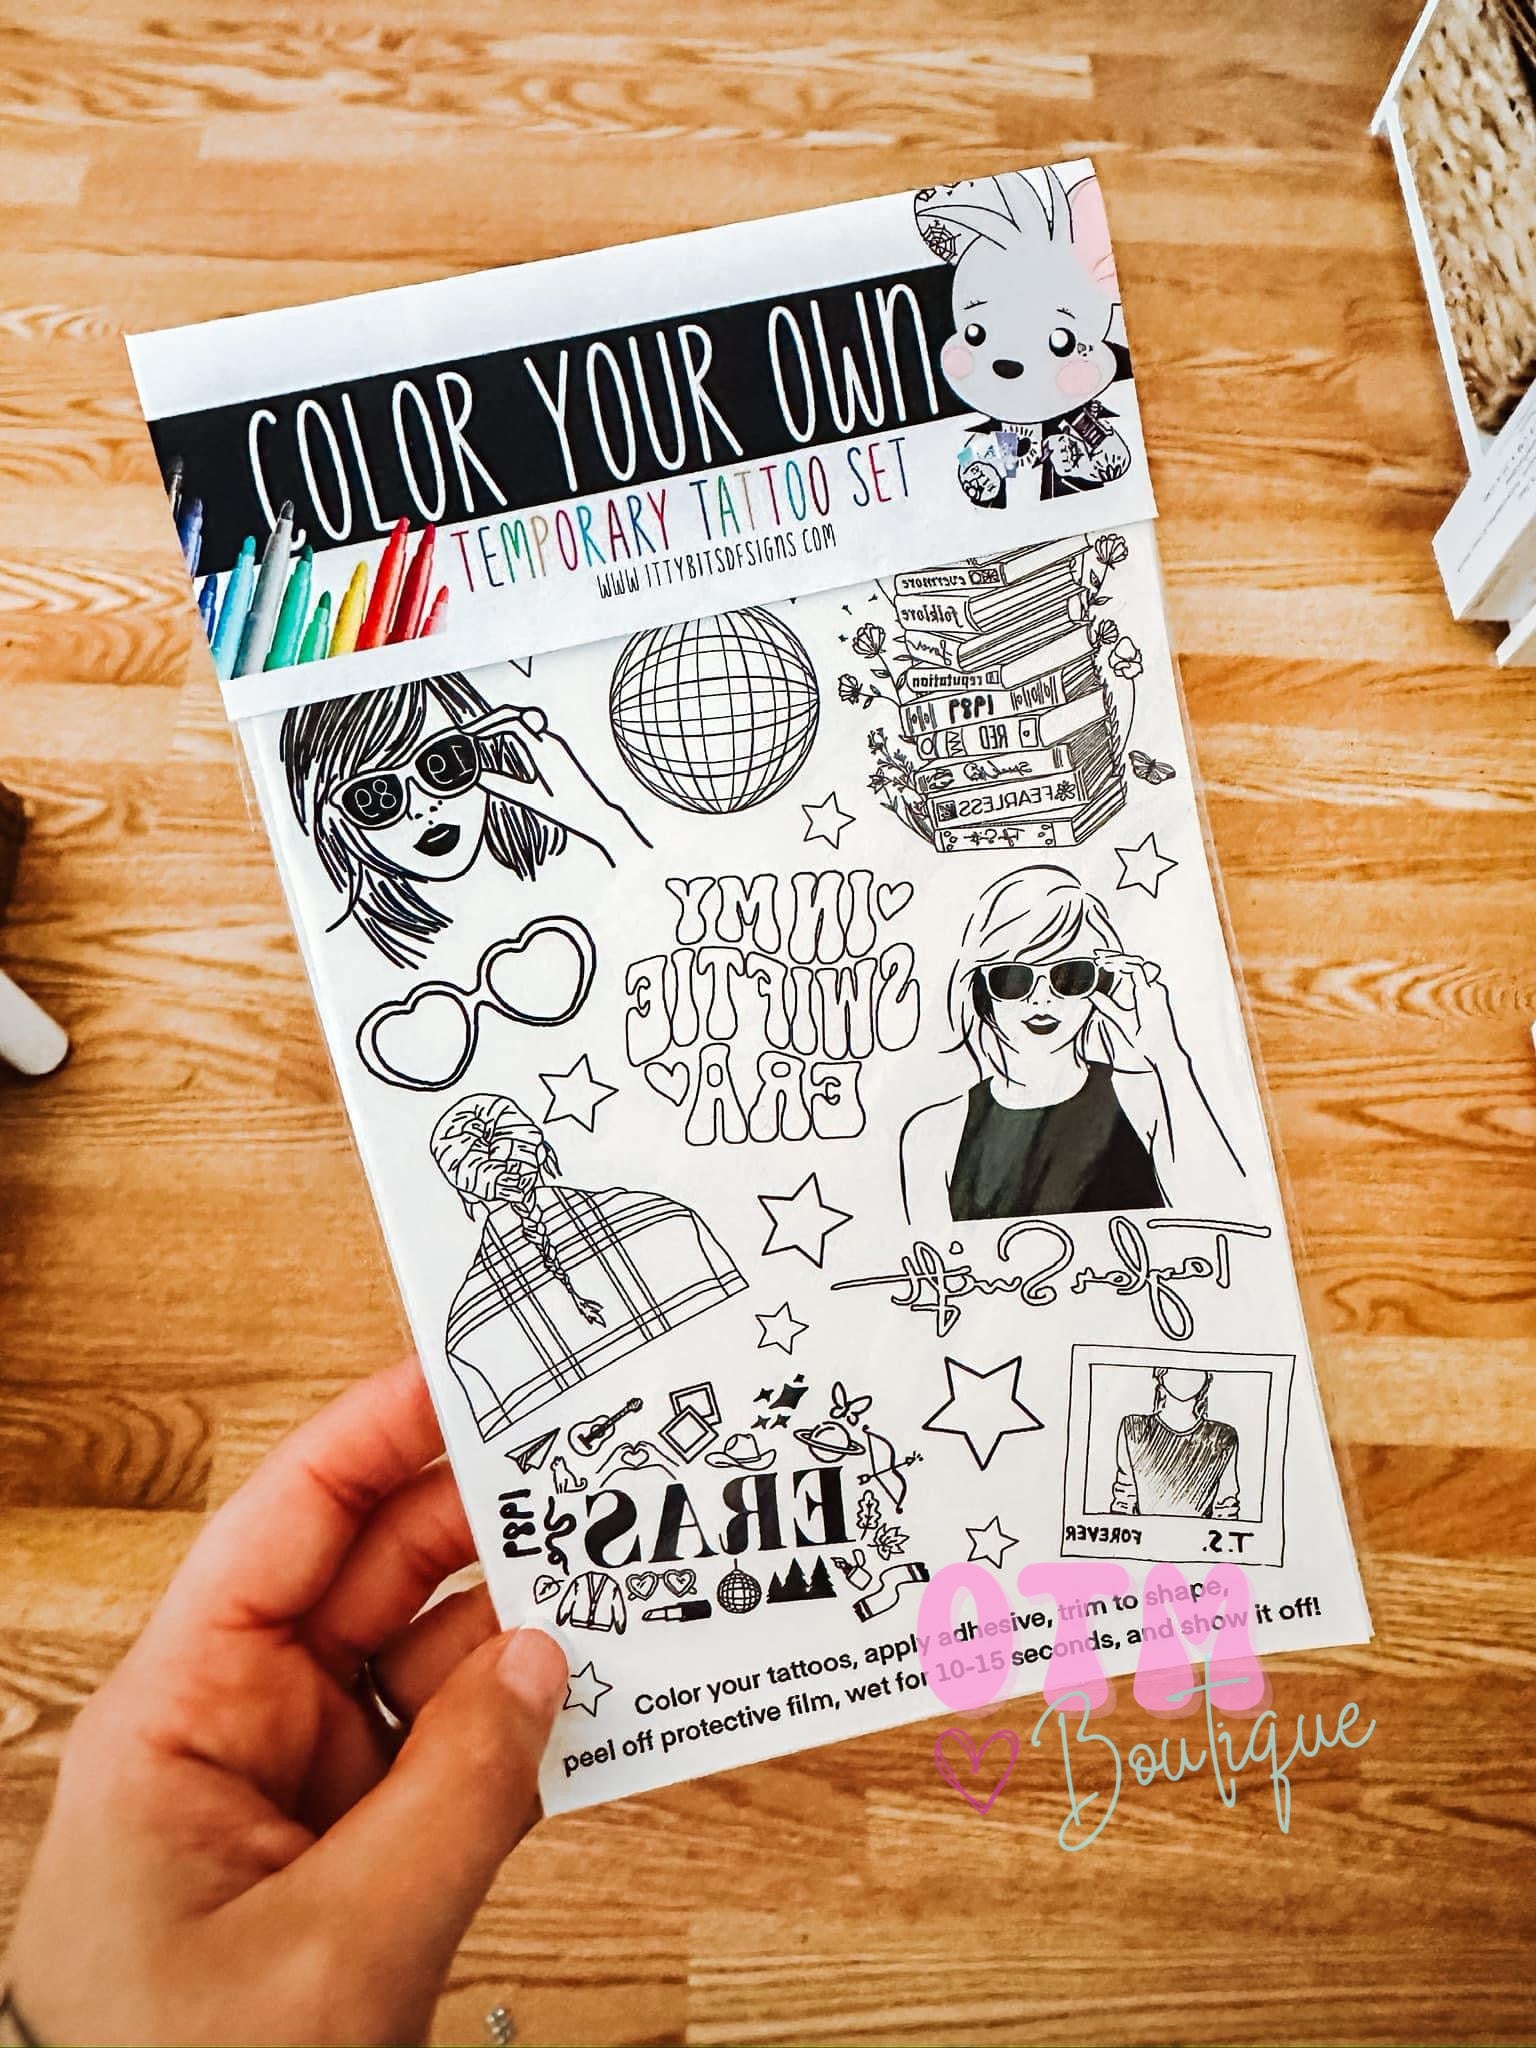 COLOR YOUR OWN
TEMPORARY TATTOO SET
WWW.ITTYBITSDESIGNS.COM
evermore
folklore
Lover
reputation
1989
RED
Speak Now
FEARLESS
Taylor Swift
19 89
IN MY
SWIFTIE
ERA
Taylor Swift
ERAS
1989
T.S. FOREVER
Color your tattoos, apply adhesive, trim to shape,
peel off protective film, wet for 10-15 seconds, and show it off!
OTM
Boutique